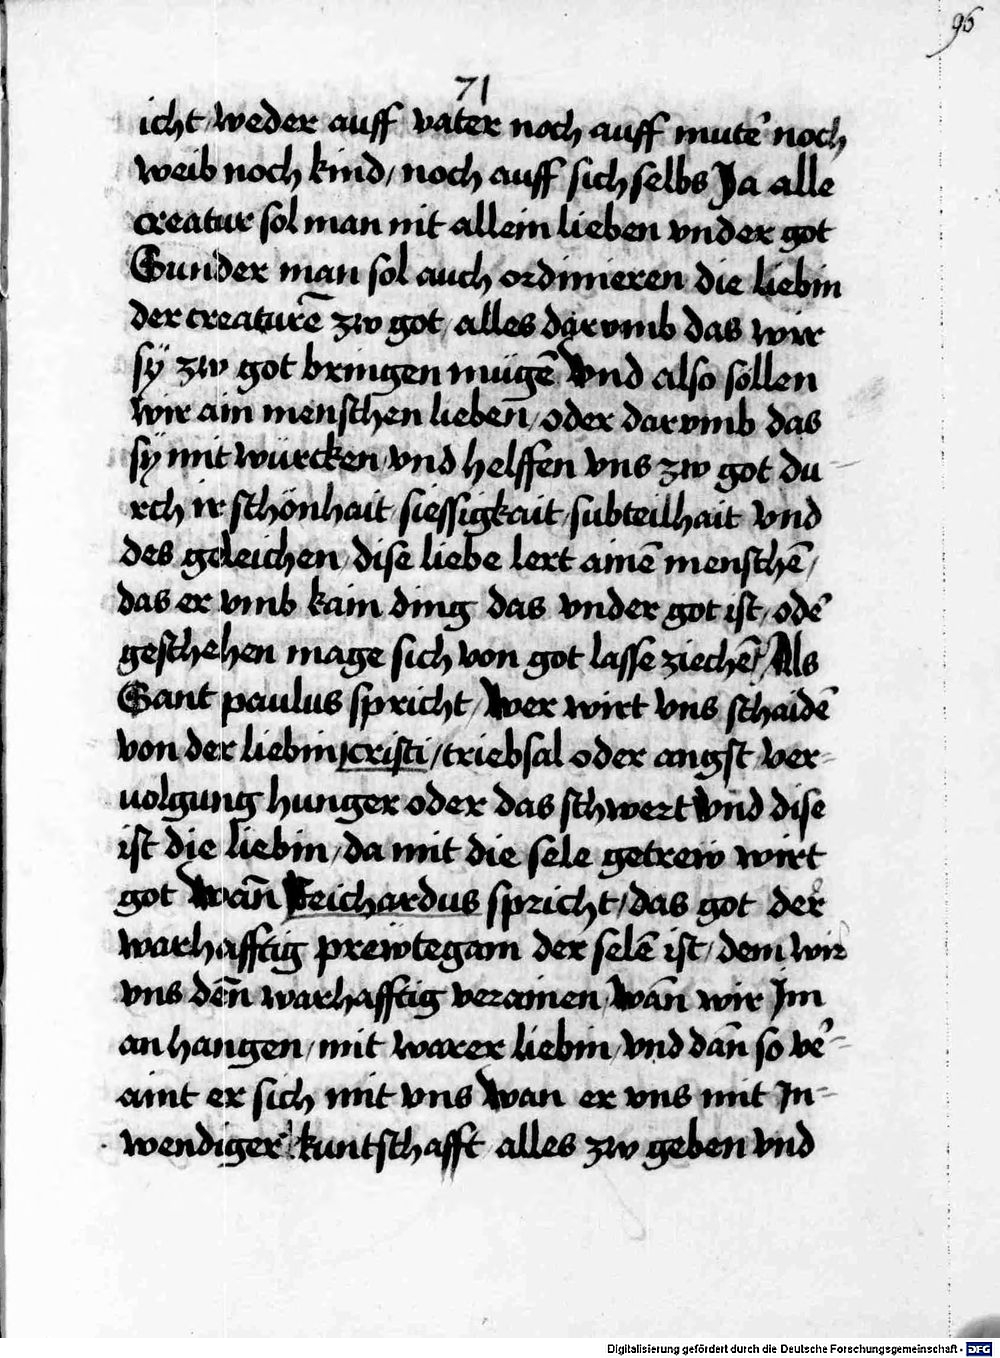 96
71
icht weder auff vater noch auff mute᷑ noch
weib noch kind/ noch auff sich selbs Ja alle
creatur sol man nit allein lieben vnder got
Sunder man sol auch ordinieren die liebin
der creaturē zw got/ alles darvmb das wir
sÿ zw got bringen mügē Vnd also söllen
wir ain menschen lieben/ oder darvmb das
sÿ mit würcken vnd helffen vns zw got du-
rch ir schönhait/ siessigkait/ subteilhait vnd
des geleichen/ dise liebe lert ainē menschē/
das er vmb kain ding das vnder got ist/ ode᷑
geschehen mage sich von got lasse ziechē/ Als
Sant paulus spricht/ Wer wirt vns schaidē
von der liebin cristi/ triebsal oder angst ver-
uolgung hunger oder das schwert Vnd dise
ist die liebin/ da mit die sele getrew wirt
got Wañ Reichardus spricht/ das got der
warhafftig prewtegam der selē ist/ dem wir
vns deñ warhafftig verainen/ Wañ wir Jm
an hangen/ mit warer liebin/ vnd dañ so ve᷑-
aint er sich mit vns Wan er vns mit Jn-
wendiger kuntschafft alles zw geben vnd
Digitalisierung gefördert durch die Deutsche Forschungsgemeinschaft - DFG